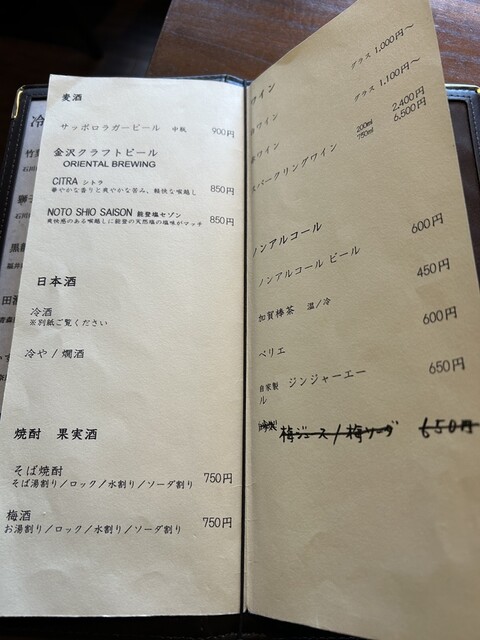 麦酒
サッポロラガービール 中瓶 900円
金沢クラフトビール
ORIENTAL BREWING
CITRA シトラ
華やかな香りと爽やかな苦み、軽快な喉越し 850円
NOTO SHIO SAISON 能登塩セゾン
爽快感のある喉越しに能登の天然塩の塩味がマッチ 850円
日本酒
冷酒
※別紙ご覧ください
冷や / 燗酒
焼酎 果実酒
そば焼酎
そば湯割り/ロック/水割り/ソーダ割り 750円
梅酒
お湯割り/ロック/水割り/ソーダ割り 750円
ワイン
ワイン グラス 1,000円〜
ワイン グラス 1,100円〜
スパークリングワイン 200ml 2,400円
750ml 6,500円
ノンアルコール
ノンアルコール ビール 600円
加賀棒茶 温/冷 450円
ペリエ 600円
自家製 ジンジャーエール 650円
自家製 梅ジュース/梅ソーダ 650円
冷